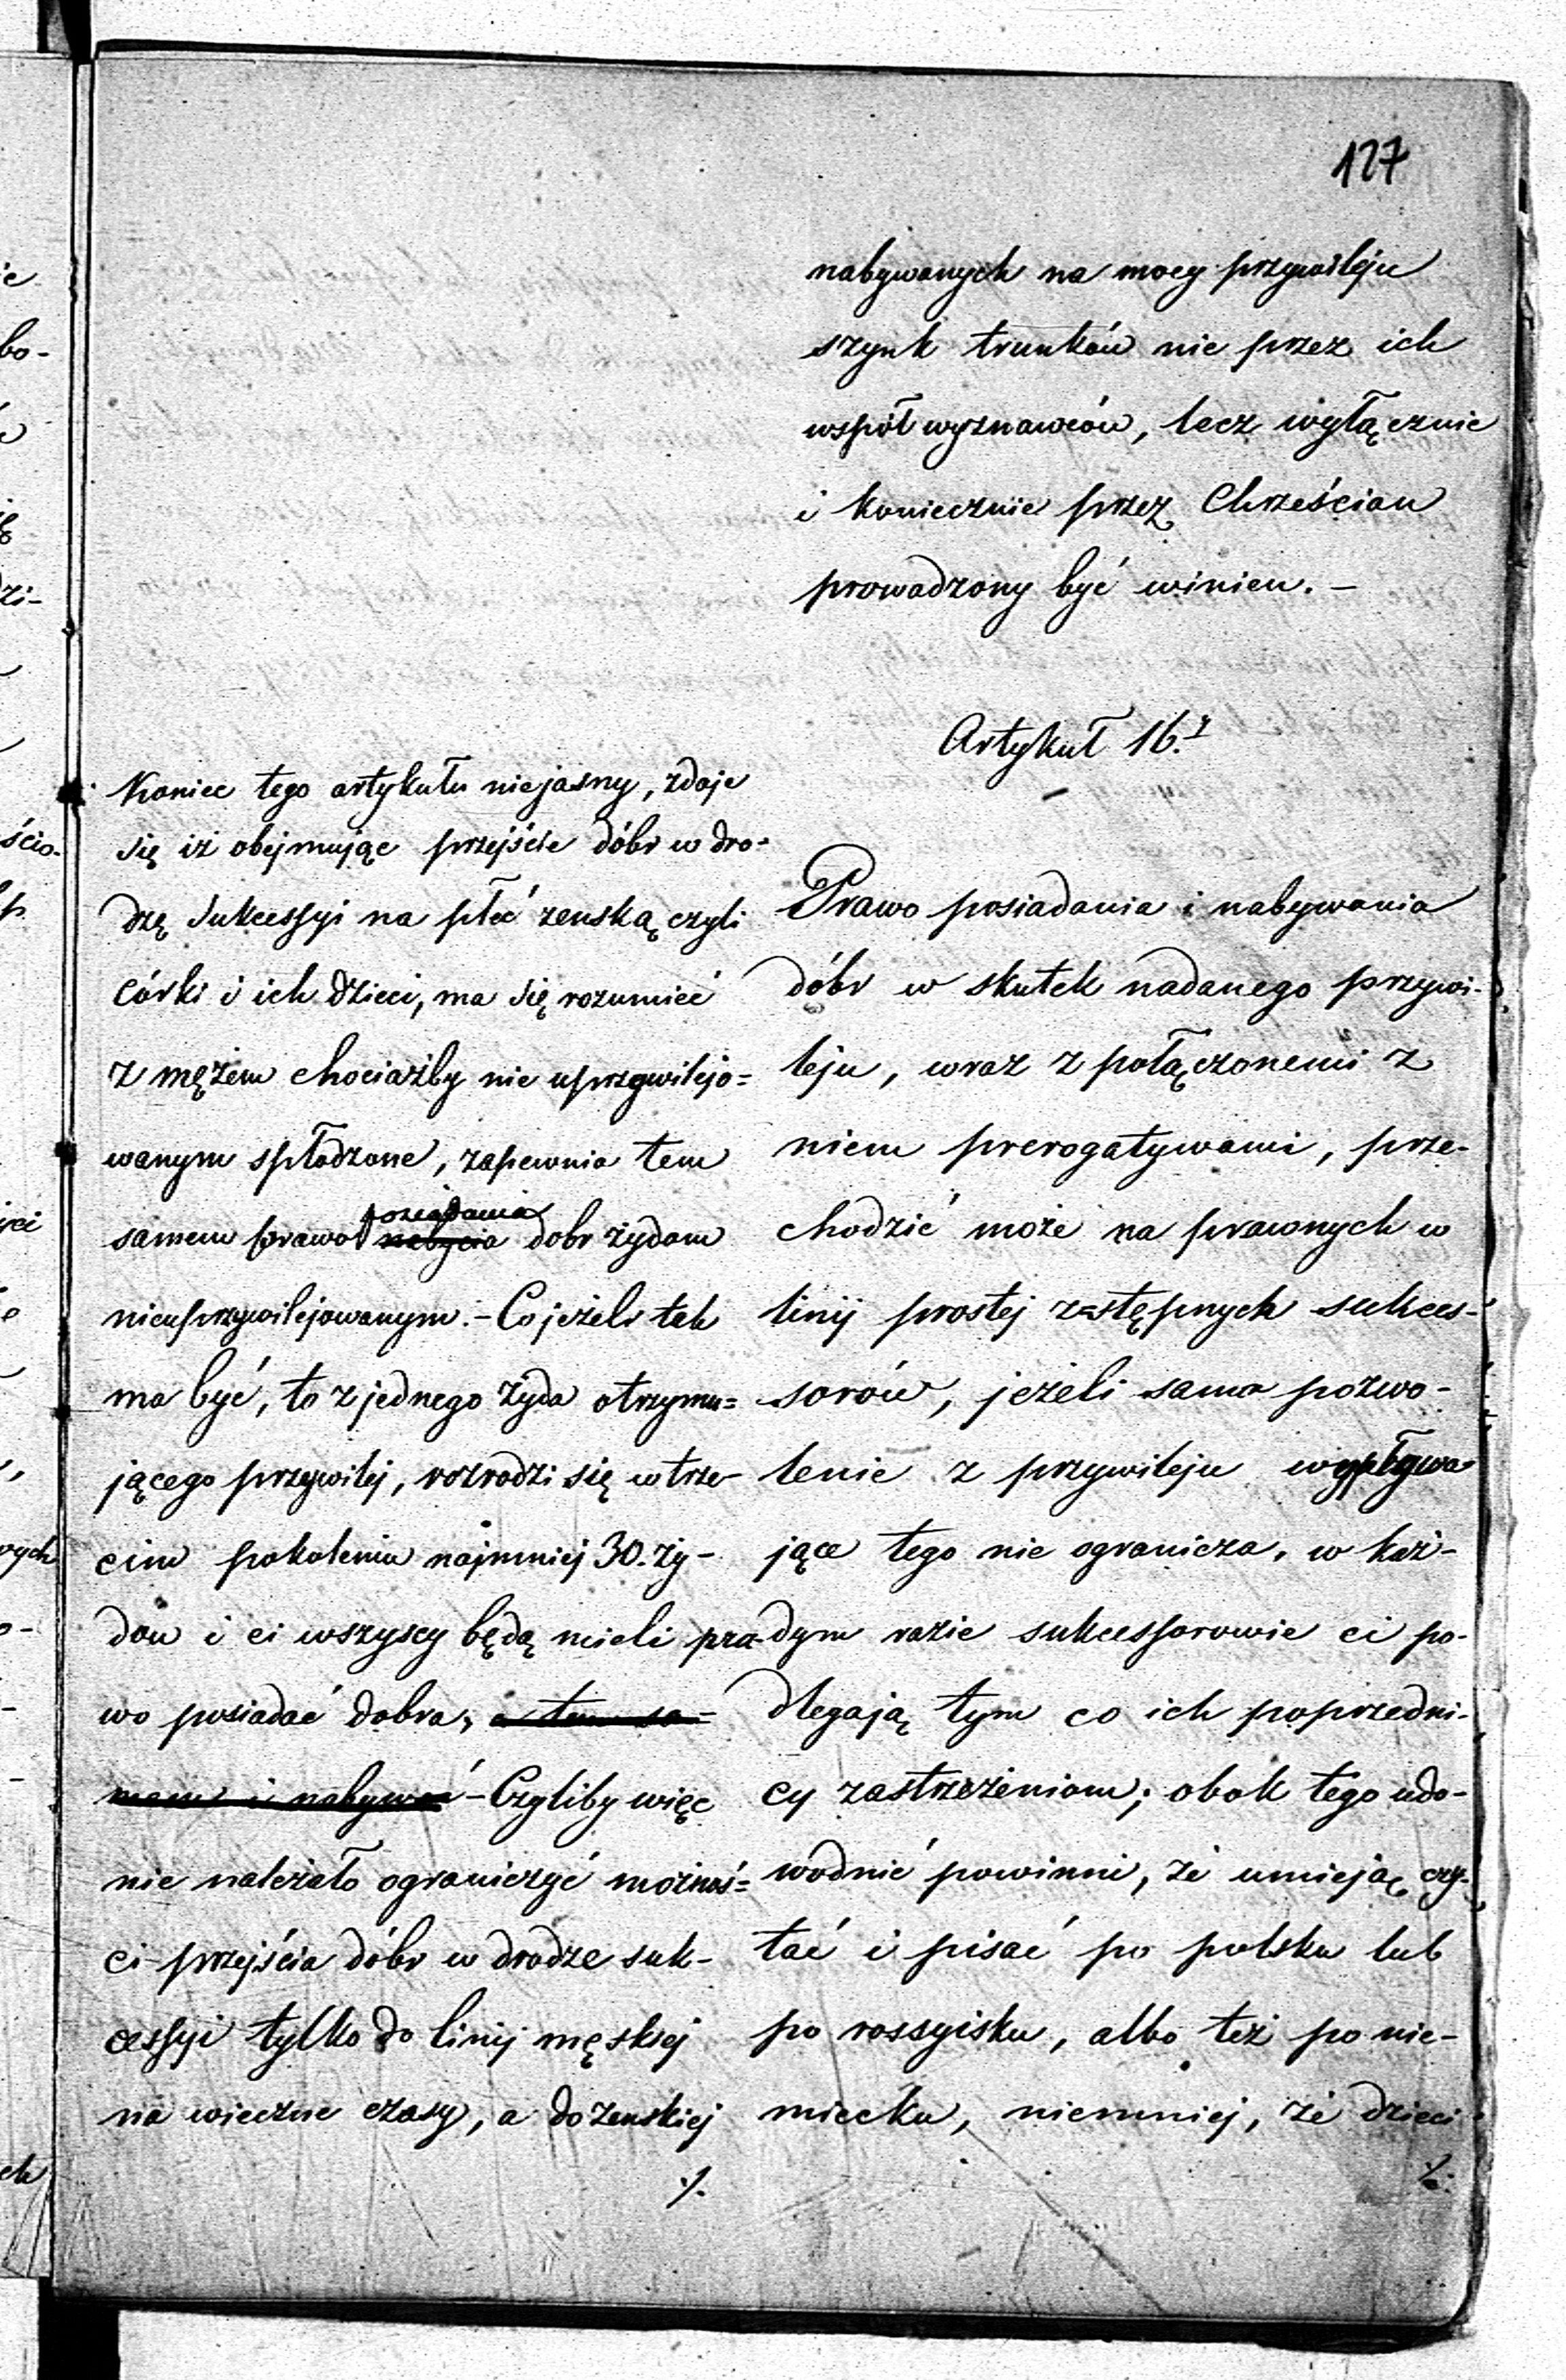 127
nabywanych na mocy przywileju
szynk trunków nie przez ich
współ wyznawców, lecz wyłącznie
i koniecznie przez Chrześcian
prowadzony być winien. –
Artykuł 16.y
Prawo posiadania i nabywania
dóbr w skutek nadanego przywi-
leju, wraz z połączonemi z
niem prerogatywami, prze-
chodzić może na prawnych w
linij prostej zstępnych sukces-
sorów, jeżeli samo pozwo-
lenie z przywileju wypływa
jące tego nie ogranicza, w każ-
dym razie sukcessorowie ci po-
dlegają tym co ich poprzedni-
cy zastrzeżeniom; obok tego udo-
wodnić powinni, że umieją czy-
tać i pisać po polsku lub
po rossyisku, albo też po nie-
miecku, niemniej, że dzieci
./.
Koniec tego artykułu niejasny, zdaje
się iż obejmując przejście dóbr w dro-
dzę Sukcessyi na płeć zenską czyli
córki i ich dzieci, ma się rozumieć
z mężem chociażby nie uprzywilejo=
wanym spłodzone, zapewnia tem
samem prawo posiadania nabycia dobr żydom
nieuprzywilejowanym. – Co jeżeli tak
ma być, to z jednego żyda otrzymu=
jącego przywilej, rozrodzi się w trze-
cim pokoleniu najmniej 30. ży-
dów i ci wszyscy będą mieli pra-
wo posiadać dobra, a tem sa=
mem i nabywać – Czyliby więc
nie należało ograniczyć możnoś=
ci przejścia dóbr w drodze suk-
cessyi tylko do linij męskiej
na wieczne czasy, a do żenskiej
./.